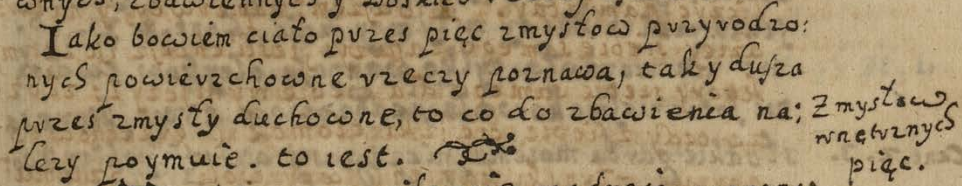 Iako bowiem ciało przes pięc zmysłow przyrodzo:
nych powierzchowne rzeczy poznawa, tak y dusza
przes zmysły duchowne, to co do zbawienia na:
leży poymuie. to iest.
Zmysłow
wnętrznych
pięc.